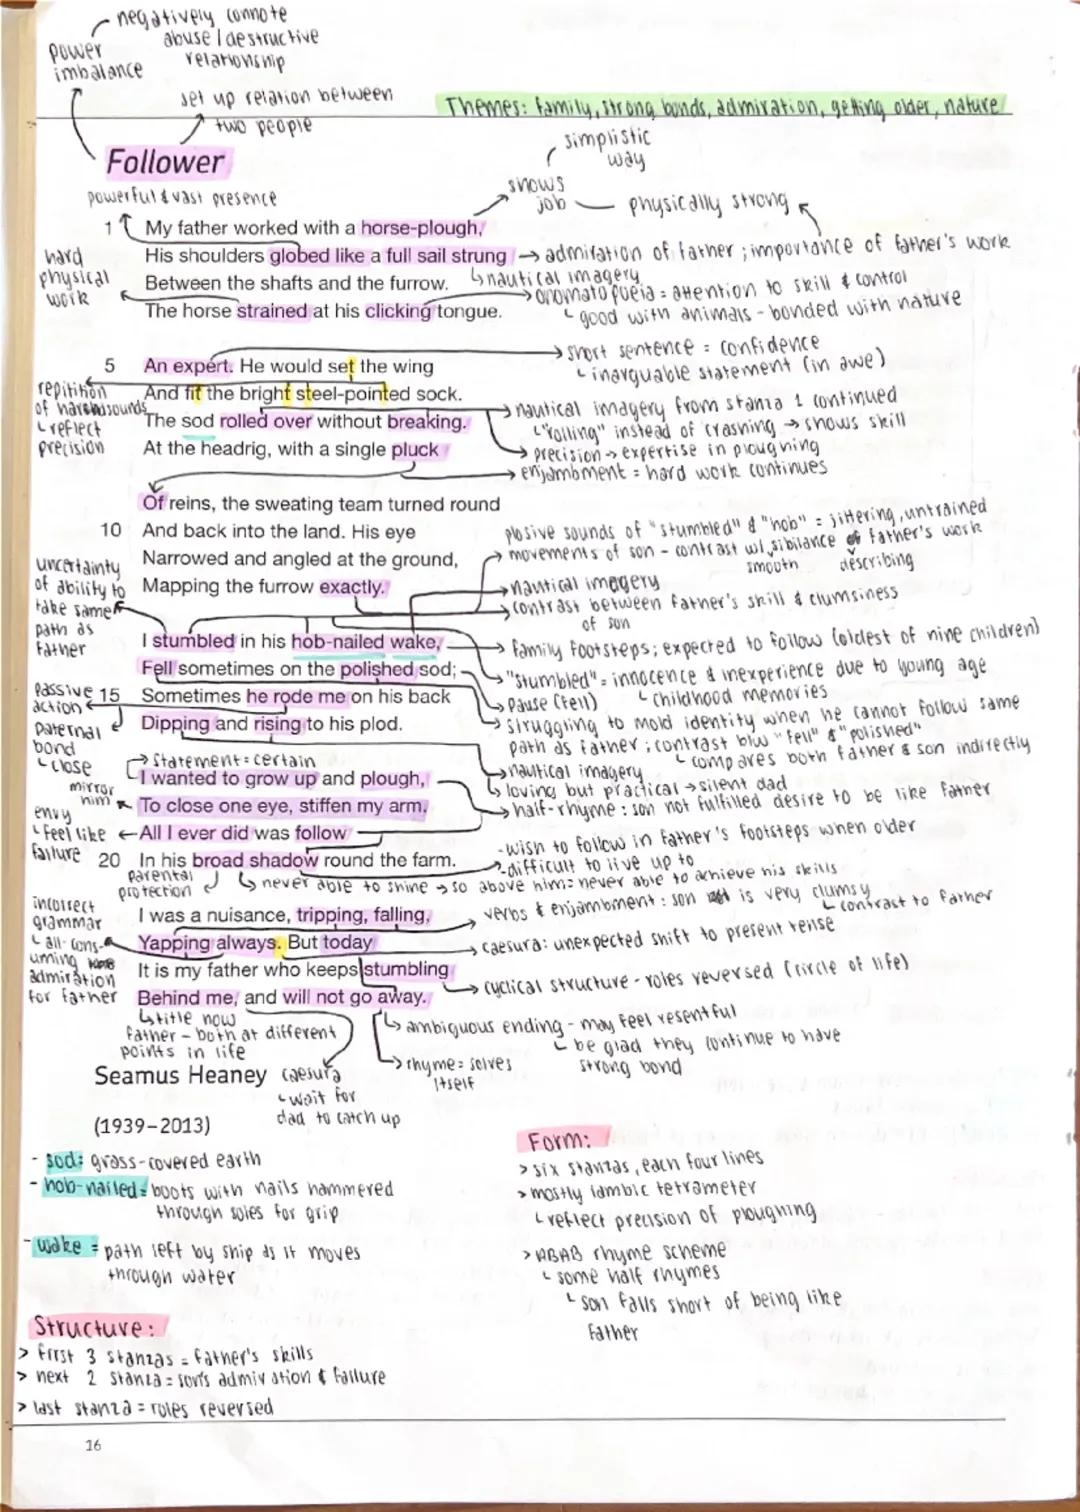 negatively connote
abuse / destructive
relationship
power
imbalance
set up relation between
two people
Themes: family, strong bonds, admiration, getting older, nature
Follower
simplistic
way
shows
job
physically strong
powerful & vast presence
1 My father worked with a horse-plough,
His shoulders globed like a full sail strung
admiration of father ; importance of father's work
hard
physical
work
Between the shafts and the furrow.
nautical imagery
The horse strained at his clicking tongue.
onomatopoeia = attention to skill & control
good with animals - bonded with nature
5 An expert. He would set the wing
short sentence = confidence
inarguable statement (in awe)
And fit the bright steel-pointed sock.
repitition
of harsh sounds
reflect
precision
The sod rolled over without breaking.
nautical imagery from stanza 1 continued
"rolling" instead of crashing → shows skill
At the headrig, with a single pluck
precision → expertise in ploughing
enjambment = hard work continues
Of reins, the sweating team turned round
10 And back into the land. His eye
Narrowed and angled at the ground,
Mapping the furrow exactly.
plosive sounds of "stumbled" & "hob" = jittering, untrained
movements of son - contrast w/ sibilance of father's work
smooth describing
nautical imagery
contrast between father's skill & clumsiness
of son
uncertainty
of ability to
take same
path as
father
I stumbled in his hob-nailed wake,
family footsteps; expected to follow (oldest of nine children)
Fell sometimes on the polished sod;
"stumbled" = innocence & inexperience due to young age
childhood memories
Pause (fell)
15 Sometimes he rode me on his back
passive
action
Dipping and rising to his plod.
paternal
bond
close
struggling to mold identity when he cannot follow same
path as father ; contrast btw "fell" & "polished"
compares both father & son indirectly
nautical imagery
loving but practical → silent dad
statement = certain
I wanted to grow up and plough,
mirror
him
To close one eye, stiffen my arm.
half-rhyme : son not fulfilled desire to be like father
envy
feel like
failure
All I ever did was follow
-wish to follow in father's footsteps when older
20 In his broad shadow round the farm.
-difficult to live up to
parental
protection
never able to shine → so above him = never able to achieve his skills
I was a nuisance, tripping, falling,
verbs & enjambment : son is very clumsy
contrast to father
incorrect
grammar
all-cons-
uming
admiration
for father
Yapping always. But today
caesura: unexpected shift to present tense
It is my father who keeps stumbling
cyclical structure - roles reversed (circle of life)
Behind me, and will not go away.
title now
father - both at different
points in life
ambiguous ending - may feel resentful
be glad they continue to have
strong bond
rhyme = solves
itself
Seamus Heaney
caesura
wait for
dad to catch up
(1939–2013)
- sod: grass-covered earth
- hob-nailed = boots with nails hammered
through soles for grip
- wake = path left by ship as it moves
through water
Form:
> six stanzas, each four lines
> mostly iambic tetrameter
reflect precision of ploughing
> ABAB rhyme scheme
some half rhymes
son falls short of being like
father
Structure:
> first 3 stanzas = father's skills
> next 2 stanza = son's admiration & failure
> last stanza = roles reversed
16